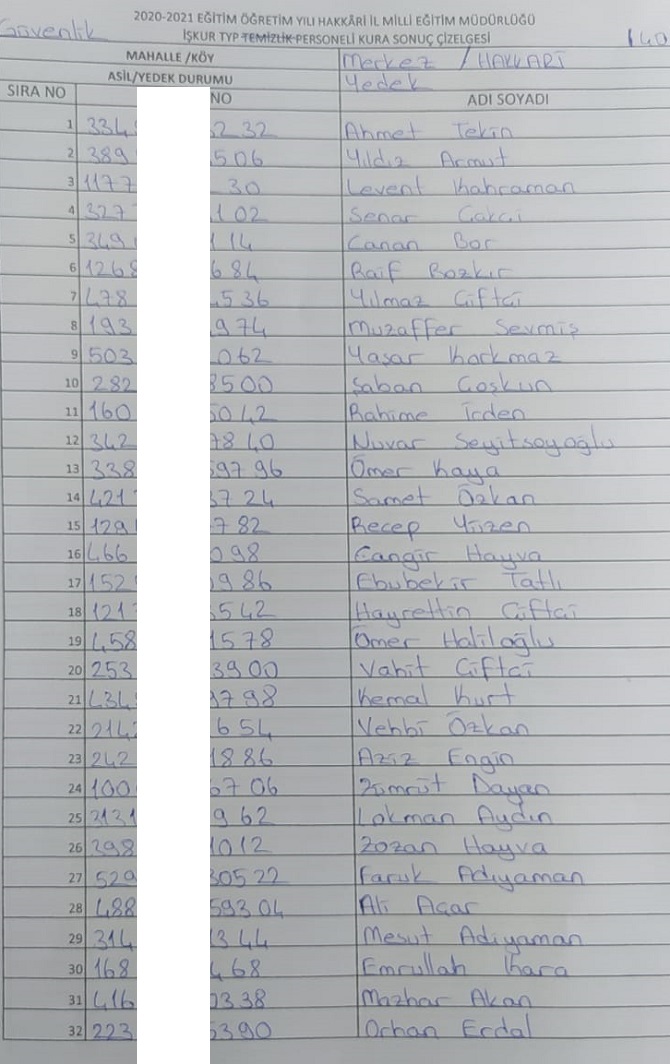 2020-2021 EĞİTİM ÖĞRETİM YILI HAKKÂRİ İL MİLLİ EĞİTİM MÜDÜRLÜĞÜ
Güvenlik İŞKUR TYP TEMİZLİK PERSONELİ KURA SONUÇ ÇİZELGESİ 140
MAHALLE /KÖY Merkez / HAKKARİ
ASİL/YEDEK DURUMU Yedek
SIRA NO NO ADI SOYADI
1 334 232 Ahmet Tekin
2 389 506 Yıldız Armut
3 1177 30 Levent Kahraman
4 327 102 Senar
5 349 114 Canan Bor
6 1268 684 Raif Bozkır
7 478 536 Yılmaz Çiftçi
8 193 974 Muzaffer Sevmiş
9 503 062 Yaşar Korkmaz
10 282 3500 Şaban Coşkun
11 160 5042 Rahime İrden
12 342 7840 Nuvar Seyitsoyoğlu
13 338 59796 Ömer Kaya
14 421 3724 Samet Özkan
15 129 782 Recep Yüzen
16 466 098 Cangir Hayva
17 152 986 Ebubekir Tatlı
18 121 542 Hayrettin Çiftçi
19 458 1578 Ömer Haliloğlu
20 253 3900 Vahit Çiftçi
21 434 9798 Kemal Kurt
22 214 654 Vehbi Özkan
23 242 1886 Aziz Engin
24 100 6706 Zümrüt Dayan
25 3131 962 Lokman Aydın
26 398 1012 Zozan Hayva
27 529 30522 Faruk Adıyaman
28 488 59304 Ali Acar
29 314 1344 Mesut Adıyaman
30 168 468 Emrullah Kara
31 416 0338 Mazhar Akan
32 223 5390 Orhan Erdal